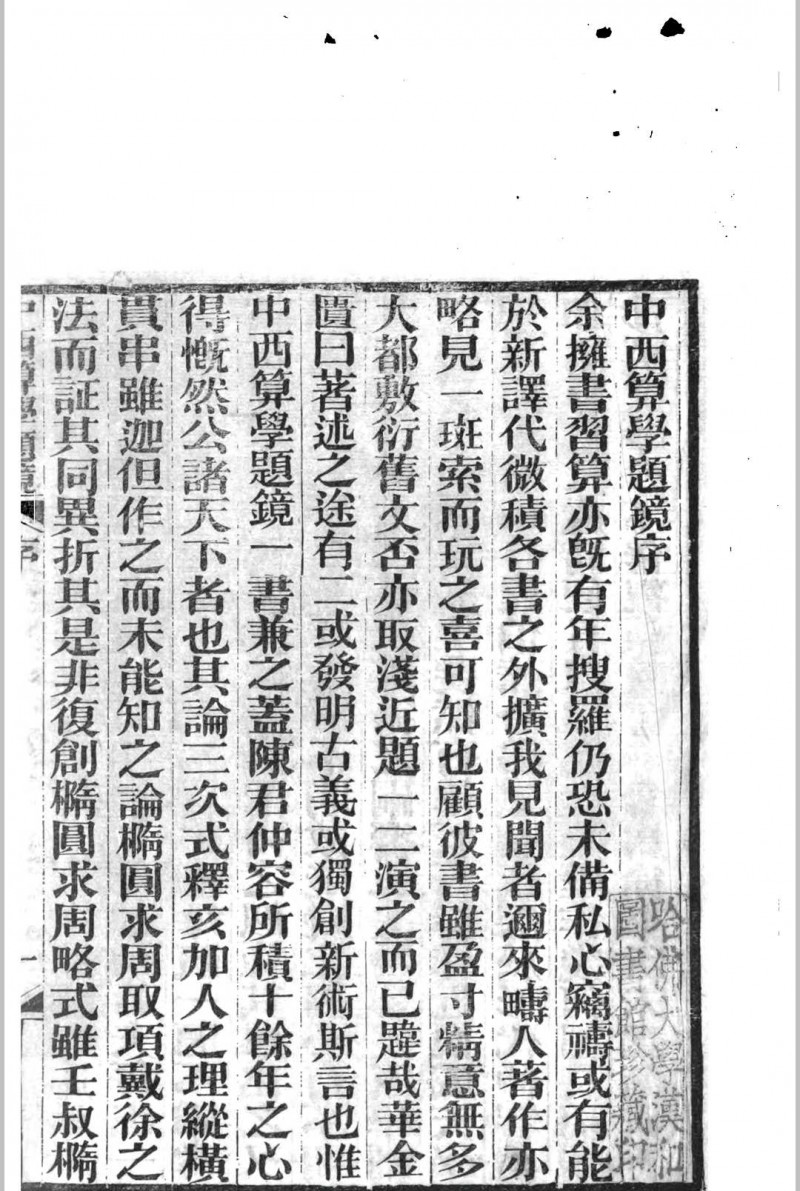 中西算學題鏡序
余擁書習算亦旣有年搜羅仍恐未備私心竊禱或有能
於新譯代微積各書之外擴我見聞者邇來疇人著作亦
略見一斑索而玩之喜可知也顧彼書雖盈寸精意無多
大都敷衍舊文否亦取淺近題一二演之而已韙哉華金
匱曰著述之途有二或發明古義或獨創新術斯言也惟
中西算學題鏡一書兼之蓋陳君仲容所積十餘年之心
得慨然公諸天下者也其論三次式釋亥加人之理縱橫
貫串雖迦但作之而未能知之論橢圓求周取項戴徐之
法而証其同異折其是非復創橢圓求周略式雖壬叔橢
中西算學題鏡
序
一
哈佛大學漢和
圖書館珍藏印